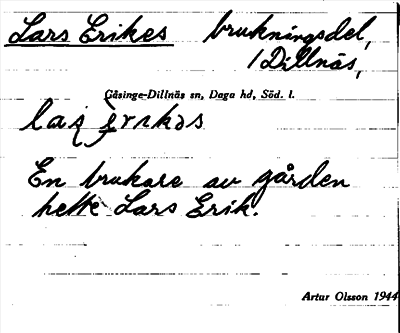 Lars Erikes brukningsdel,
1 Dillnäs,
Gåsinge-Dillnäs sn, Daga hd, Söd. l.
En brukare av gården
hette Lars Erik.
Artur Olsson 1944